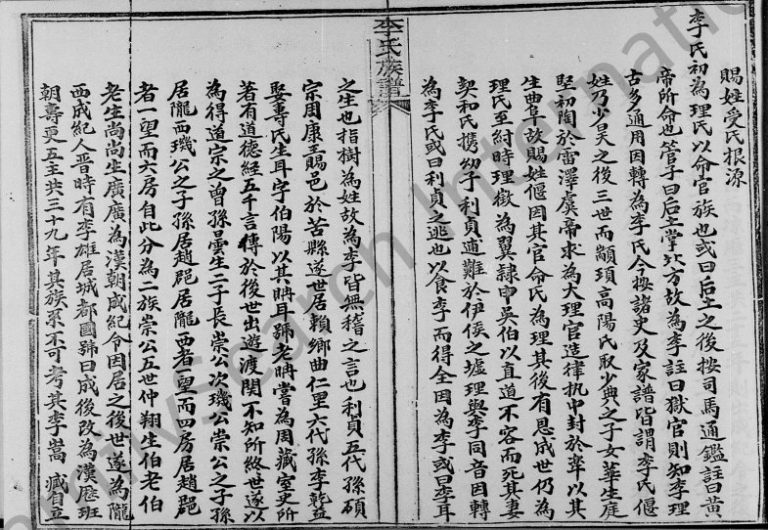 賜姓受氏根源
李氏初為理氏以命官族也或曰后土之後按司馬通鑑註曰黃
帝所命也管子曰后土掌北方故為李註曰獄官則知李理
古多通用因轉為李氏今按諸史及家譜皆謂李氏偃
姓乃少昊之後三世而顓頊高陽氏取少典之子女華生庭
堅初陶於雷澤虞帝求為大理官造律執中封於皋以其
生曲阜故賜姓偃因其官命氏為理其後有恩成世仍為
理氏至紂時理徵為翼隸中吳伯以直道不容而死其妻
契和氏携幼子利貞逋難於伊侯之墟理與李同音因轉
為李氏或曰利貞之逃也以食李而得全因為李或曰李耳
李氏族譜
之生也指樹為姓故為李皆無稽之言也利貞五代孫碩
宗周康王賜邑於苦縣遂世居賴鄉曲仁里六代孫李乾益
娶壽氏生耳字伯陽以其聃耳號老聃嘗為周藏室史所
著有道德經五千言傳於後世出遊渡関不知所終世遂以
為得道宗之曾孫曇生二子長崇公次璣公崇公之子孫
居隴西璣公之子孫居趙郡居隴西者一望而四房居趙郡
者一望而六房自此分為二族崇公五世仲翔生伯老伯
老生尚尚生廣廣為漢朝成紀令因居之後世遂為隴
西成紀人晋時有李雄居城都國號曰成後改為漢歷班
朝壽更五主共三十九年其族系不可考其李暠 臧自立
Internatio